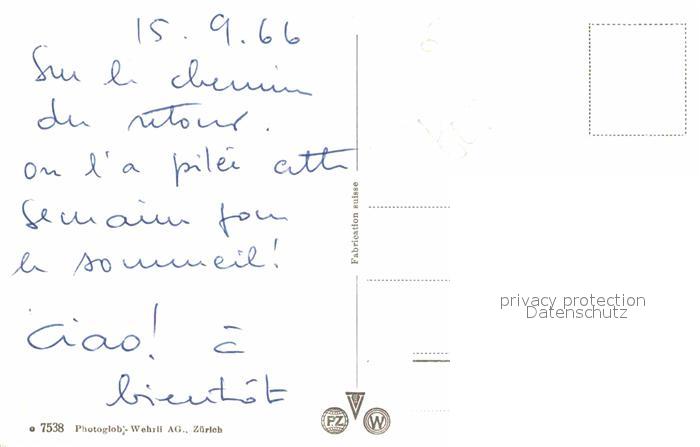 15.9.66
Sur le chemin
du retour.
on l'a pilée cette
semaine pour
le sommeil!
Ciao! à
bientôt
Fabrication suisse
privacy protection
Datenschutz
PZ W
7538 Photoglob-Wehrli AG., Zürich